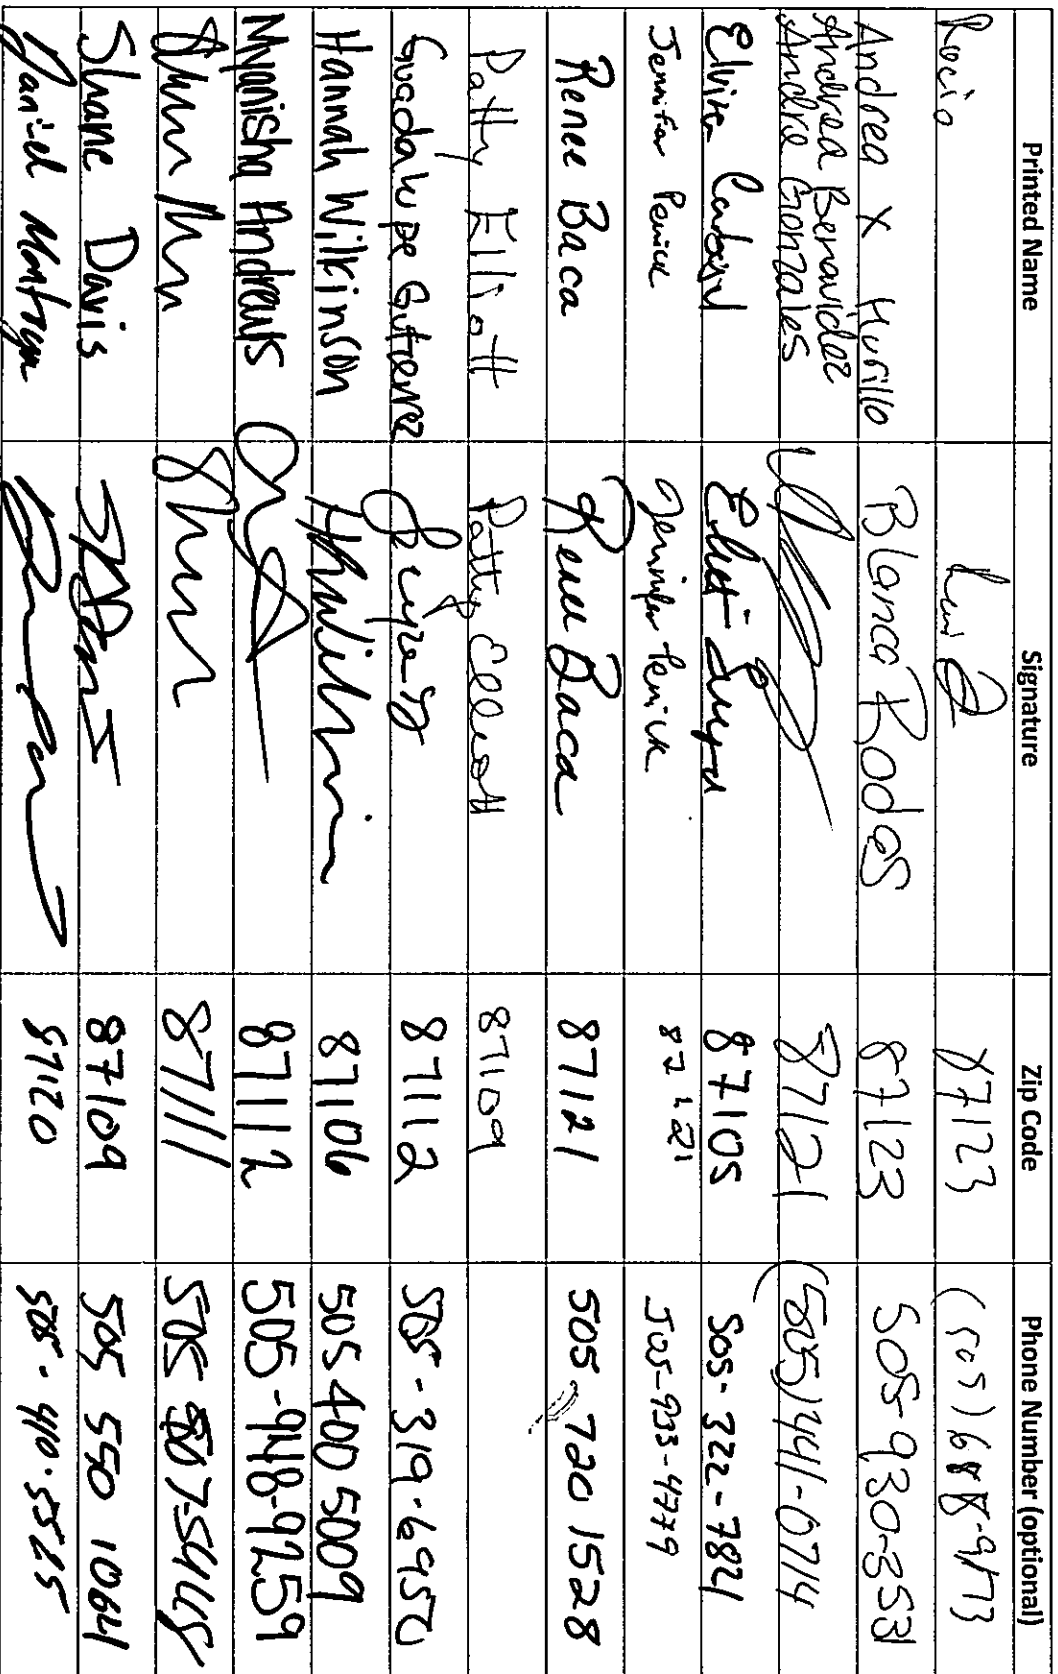 Printed Name Signature Zip Code Phone Number (optional)
Rocio 87123 (505) 688-9173
Andrea X Murillo Blanca Rodas 87123 505-930-8531
Andrea Benavidez
Andre Gonzales 87121 (505) 441-6714
Elvira 87105 505-322-7821
Jennifer Penick Jennifer Penick 87121 505-933-4779
Renee Baca Renee Baca 87121 505 720 1528
Patty Elliott Patty Elliott 87109
Guadalupe Gutierrez 87112 505-319-6950
Hannah Wilkinson 87106 505 400 5009
Mynisha Andrews 87112 505-948-9259
87111 505
Shane Davis 87109 505 550 1064
Daniel 87120 505-410-5525